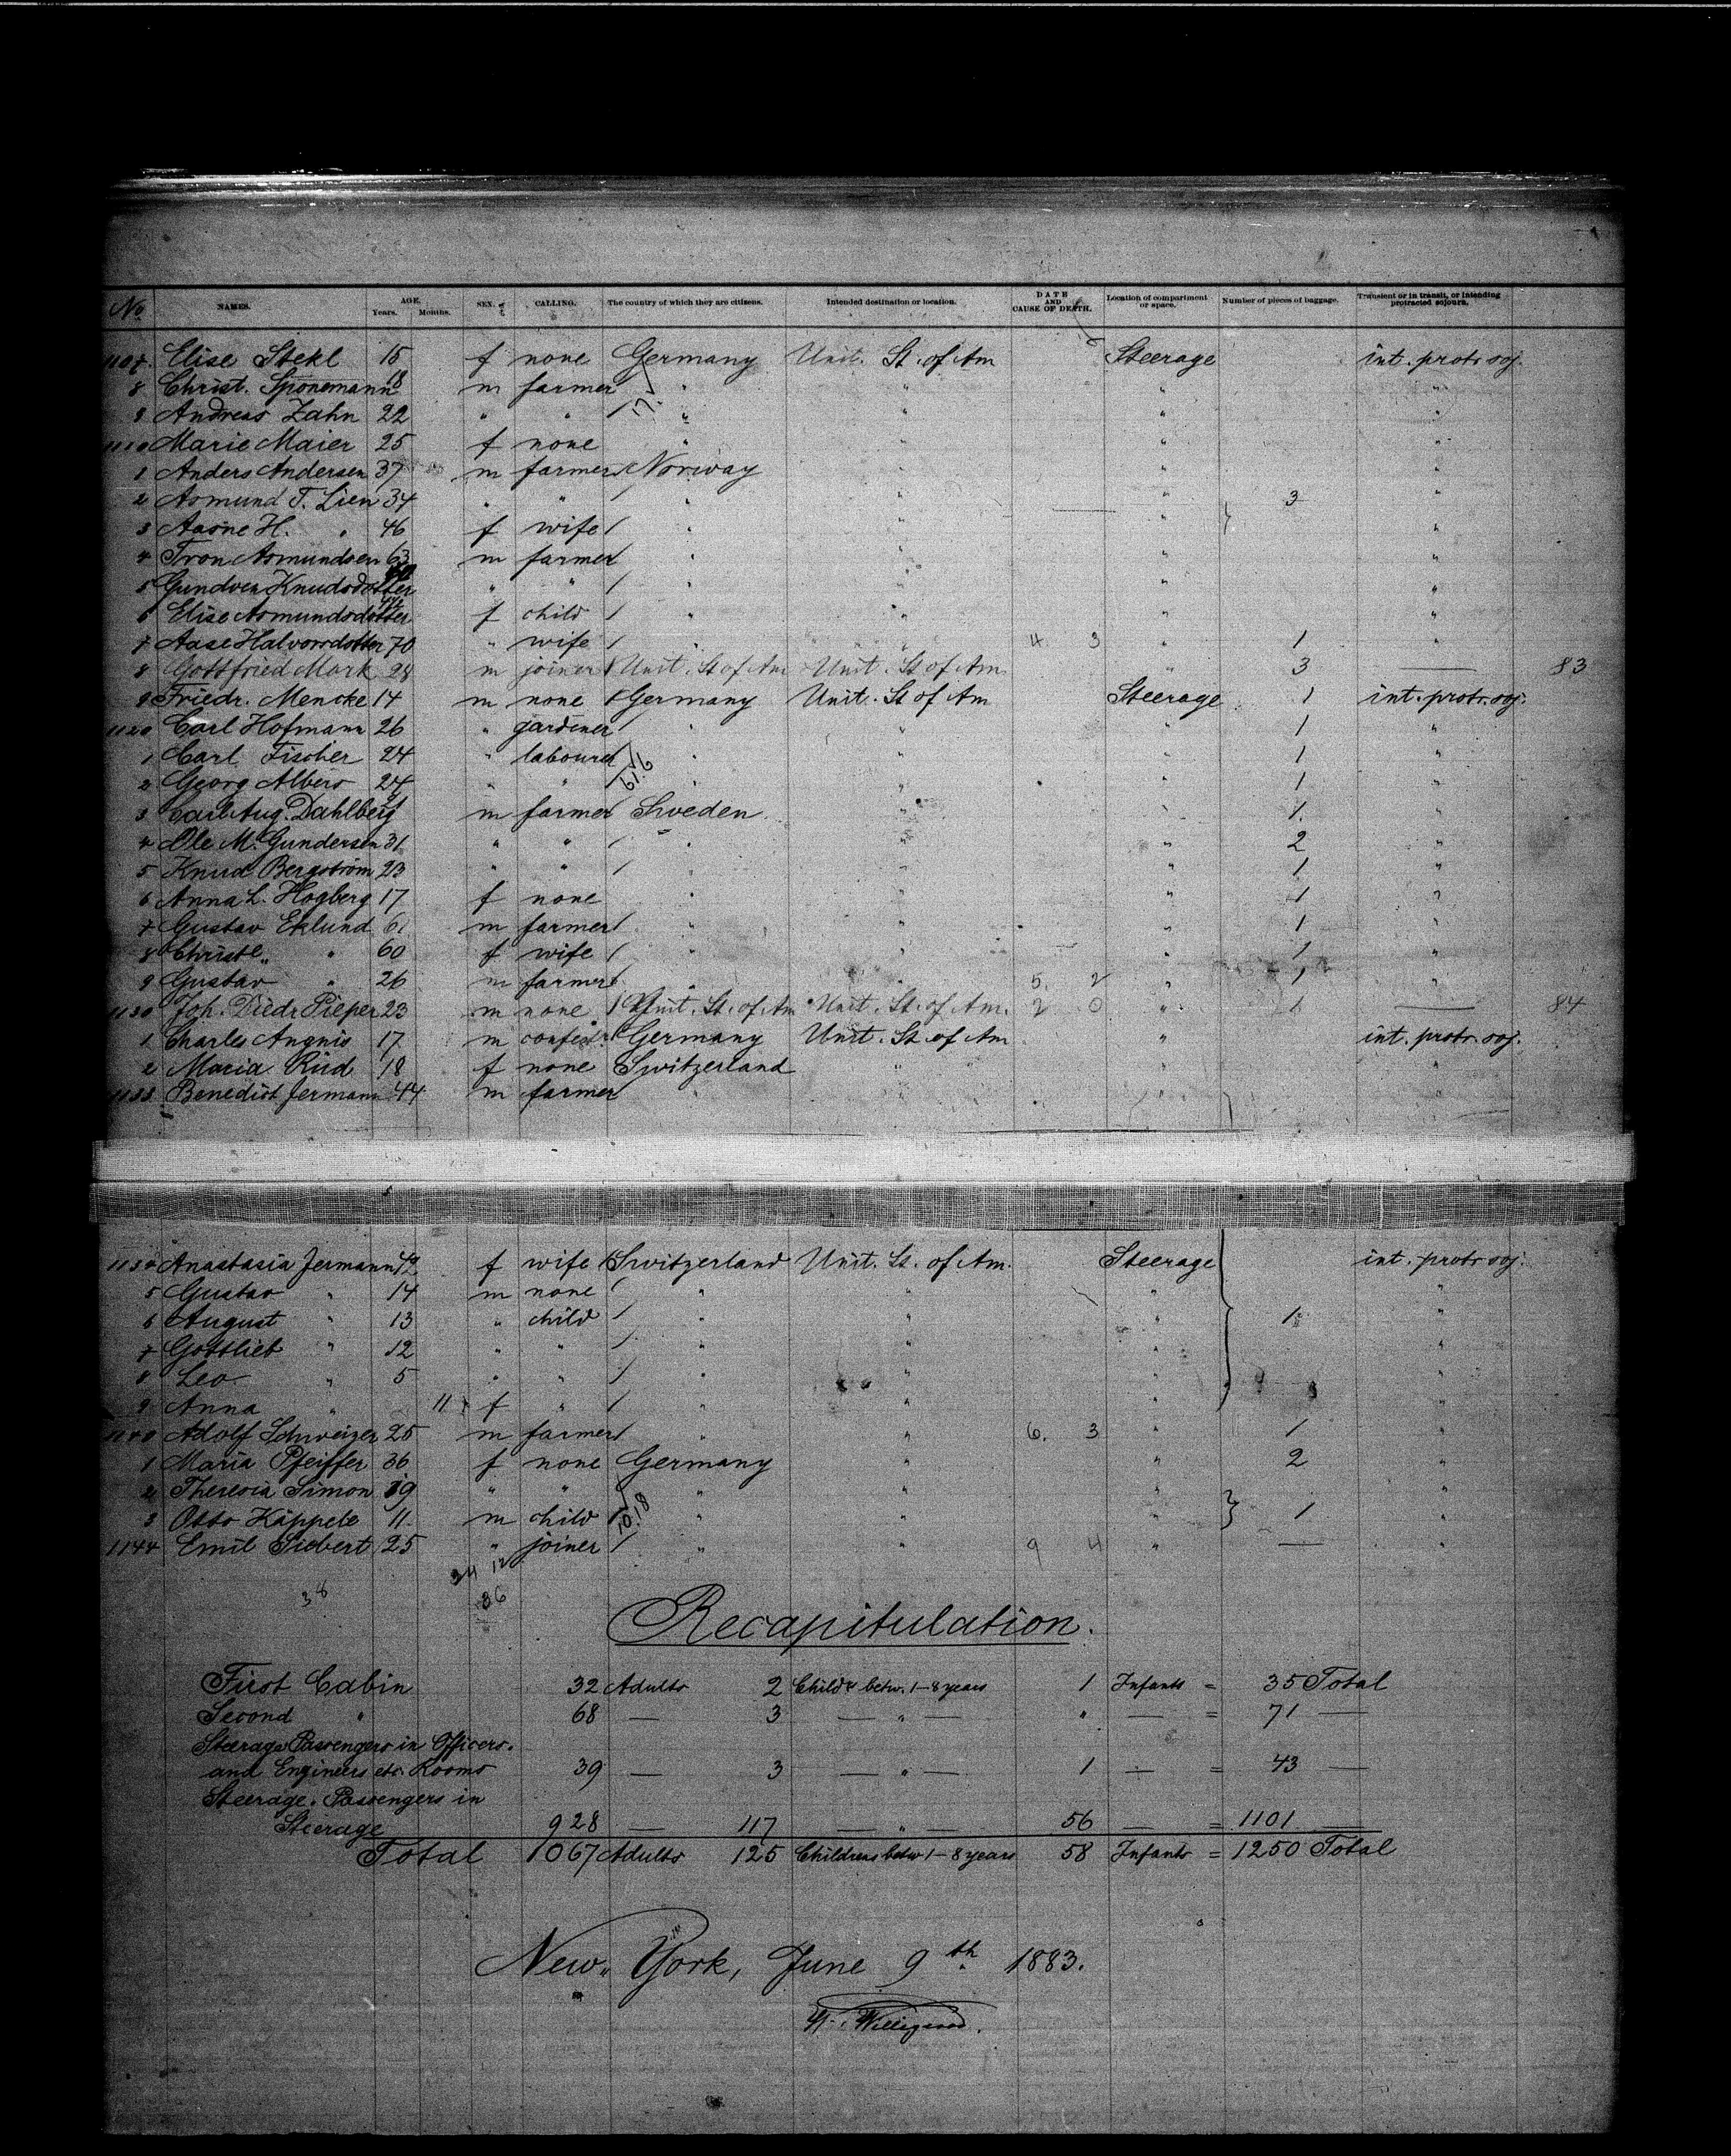 No NAMES. AGE. Years. Months. SEX. CALLING. The country of which they are citizens. Intended destination or location. DATE AND CAUSE OF DEATH. Location of compartment or space. Number of pieces of baggage. Transient or in transit, or intending protracted sojourn.
1107. Elise Stekl 15 f none Germany Unit. St. of Am Steerage int. protr. soj.
8 Christ. Sponemann 18 m farmer " " " "
9 Andreas Zahn 22 " " " " " "
1110 Marie Maier 25 f none " " " "
1 Anders Andersen 37 m farmer Norway " " "
2 Asmund T. Lien 34 " " " " " 3 "
3 Aasne H. " 46 f wife " " " "
4 Tron Asmundsen 63 m farmer " " " "
5 Gundven Knudsdotter " " " " " "
6 Elise Asmundsdotter f child " " " "
7 Aase Halvorsdotter 70 " wife " " 4 3 " 1 "
8 Gottfried Mark 28 m joiner Unit. St of Am Unit. St of Am " 3 — 83
9 Friedr. Mencke 14 m none Germany Unit. St of Am Steerage 1 int. protr. soj.
1120 Carl Hofmann 26 " gardener " " " 1 "
1 Carl Fischer 24 " labourer " " " 1 "
2 Georg Albers 24 " " " " " 1 "
3 Carl Aug. Dahlberg 21 m farmer Sweden " " 1 "
4 Ole M. Gundersen 31 " " " " " 2 "
5 Knud Bergström 23 " " " " " 1 "
6 Anna L. Hogberg 17 f none " " " 1 "
7 Gustav Eklund 61 m farmer " " " 1 "
8 Christe " 60 f wife " " " 1 "
9 Gustav " 26 m farmer " " 5. 2 " 1 "
1130 Joh. Diedr Pieper 23 m none Unit. St. of Am Unit. St. of Am. 2 0 " 1 — 84
1 Charles Angnis 17 m confect. Germany Unit. St. of Am " int. protr. soj.
2 Maria Rüd 18 f none Switzerland " " "
1133 Benedict Jermann 44 m farmer
1134 Anastasia Jermann 42 f wife Switzerland Unit. St. of Am. Steerage int. protr soj.
5 Gustav " 14 m none " " " "
6 August " 13 " child " " " 1 "
7 Gottlieb " 12 " " " " " "
8 Leo " 5 " " " " " "
9 Anna " 11 f " " " " "
1140 Adolf Schweizer 25 m farmer " " 6. 3 " 1 "
1 Maria Pfeiffer 36 f none Germany " " 2 "
2 Theresia Simon 19 " " " " " "
3 Otto Käppele 11 m child " " " 1 "
1144 Emil Siebert 25 " joiner " " 9 4 " — "
34 12
38 36
Recapitulation.
First Cabin 32 Adults 2 Child betw. 1–8 years 1 Infants = 35 Total
Second " 68 — 3 — " — " — = 71 —
Steerage Passengers in Officers.
and Engineers etc. Rooms 39 — 3 — " — 1 — = 43 —
Steerage. Passengers in
Steerage 928 — 117 — " — 56 — = 1101 —
Total 1067 Adults 125 Children betw 1–8 years 58 Infants = 1250 Total
New York, June 9th 1883.